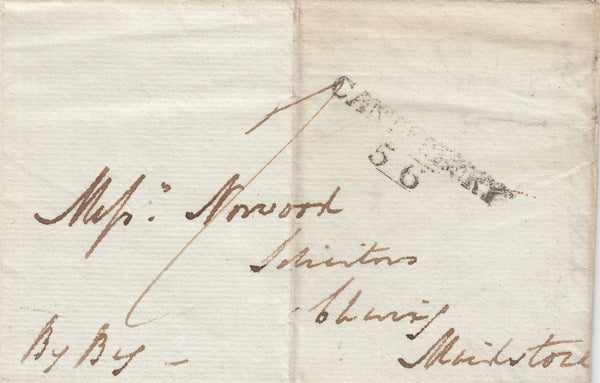 CANTERBURY
56
7
Mess.rs Norwood
Solicitors
Charing
Maidstone
By Bag -